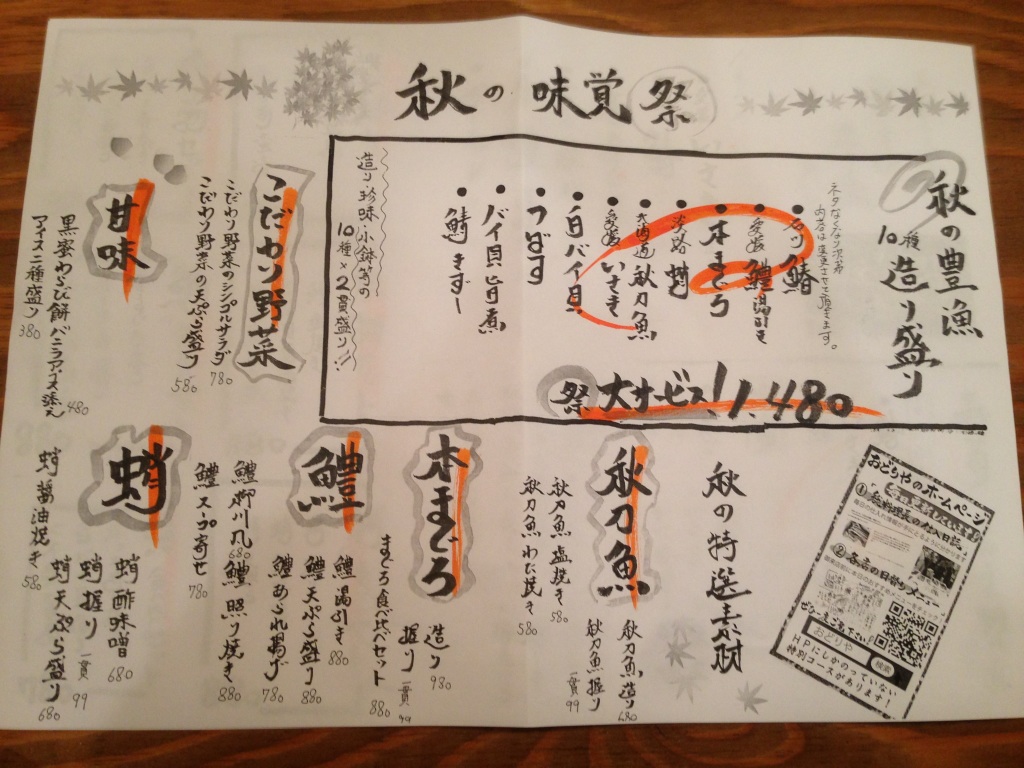 秋の味覚祭
秋の豊漁
10種 造り盛り
ネタなくなり次第
内容は変更させて頂きます。
・石川 鰆
・愛媛 鱧湯引き
・本まぐろ
・淡路 蛸
・北海道 秋刀魚
・愛媛 いさき
・白バイ貝
・うばす
・バイ貝旨煮
・鯖きずし
造り・珍味・小鉢等の
10種×2貫盛り!!
祭 大サービス!1,480
こだわり野菜
こだわり野菜のシンプルサラダ 780
こだわり野菜の天ぷら盛り 580
甘味
黒蜜わらび餅バニラアイス添え 480
アイス二種盛り 380
秋の特選素材
秋刀魚
秋刀魚塩焼き 580
秋刀魚わた焼き 580
秋刀魚造り 680
秋刀魚握り 一貫 99
本まぐろ
造り 980
握り 一貫 99
まぐろ食べ比べセット 880
鱧
鱧湯引き 880
鱧天ぷら盛り 880
鱧あられ揚げ 780
鱧柳川風 680
鱧照り焼き 880
鱧スープ寄せ 780
蛸
蛸酢味噌 680
蛸握り 一貫 99
蛸天ぷら盛り 680
蛸醤油焼き 580
おどりやのホームページ
②各店の日替りメニュー
ぜひ一度ご覧下さい
おどりや 検索
HPにしかのっていない
特別コースがあります!